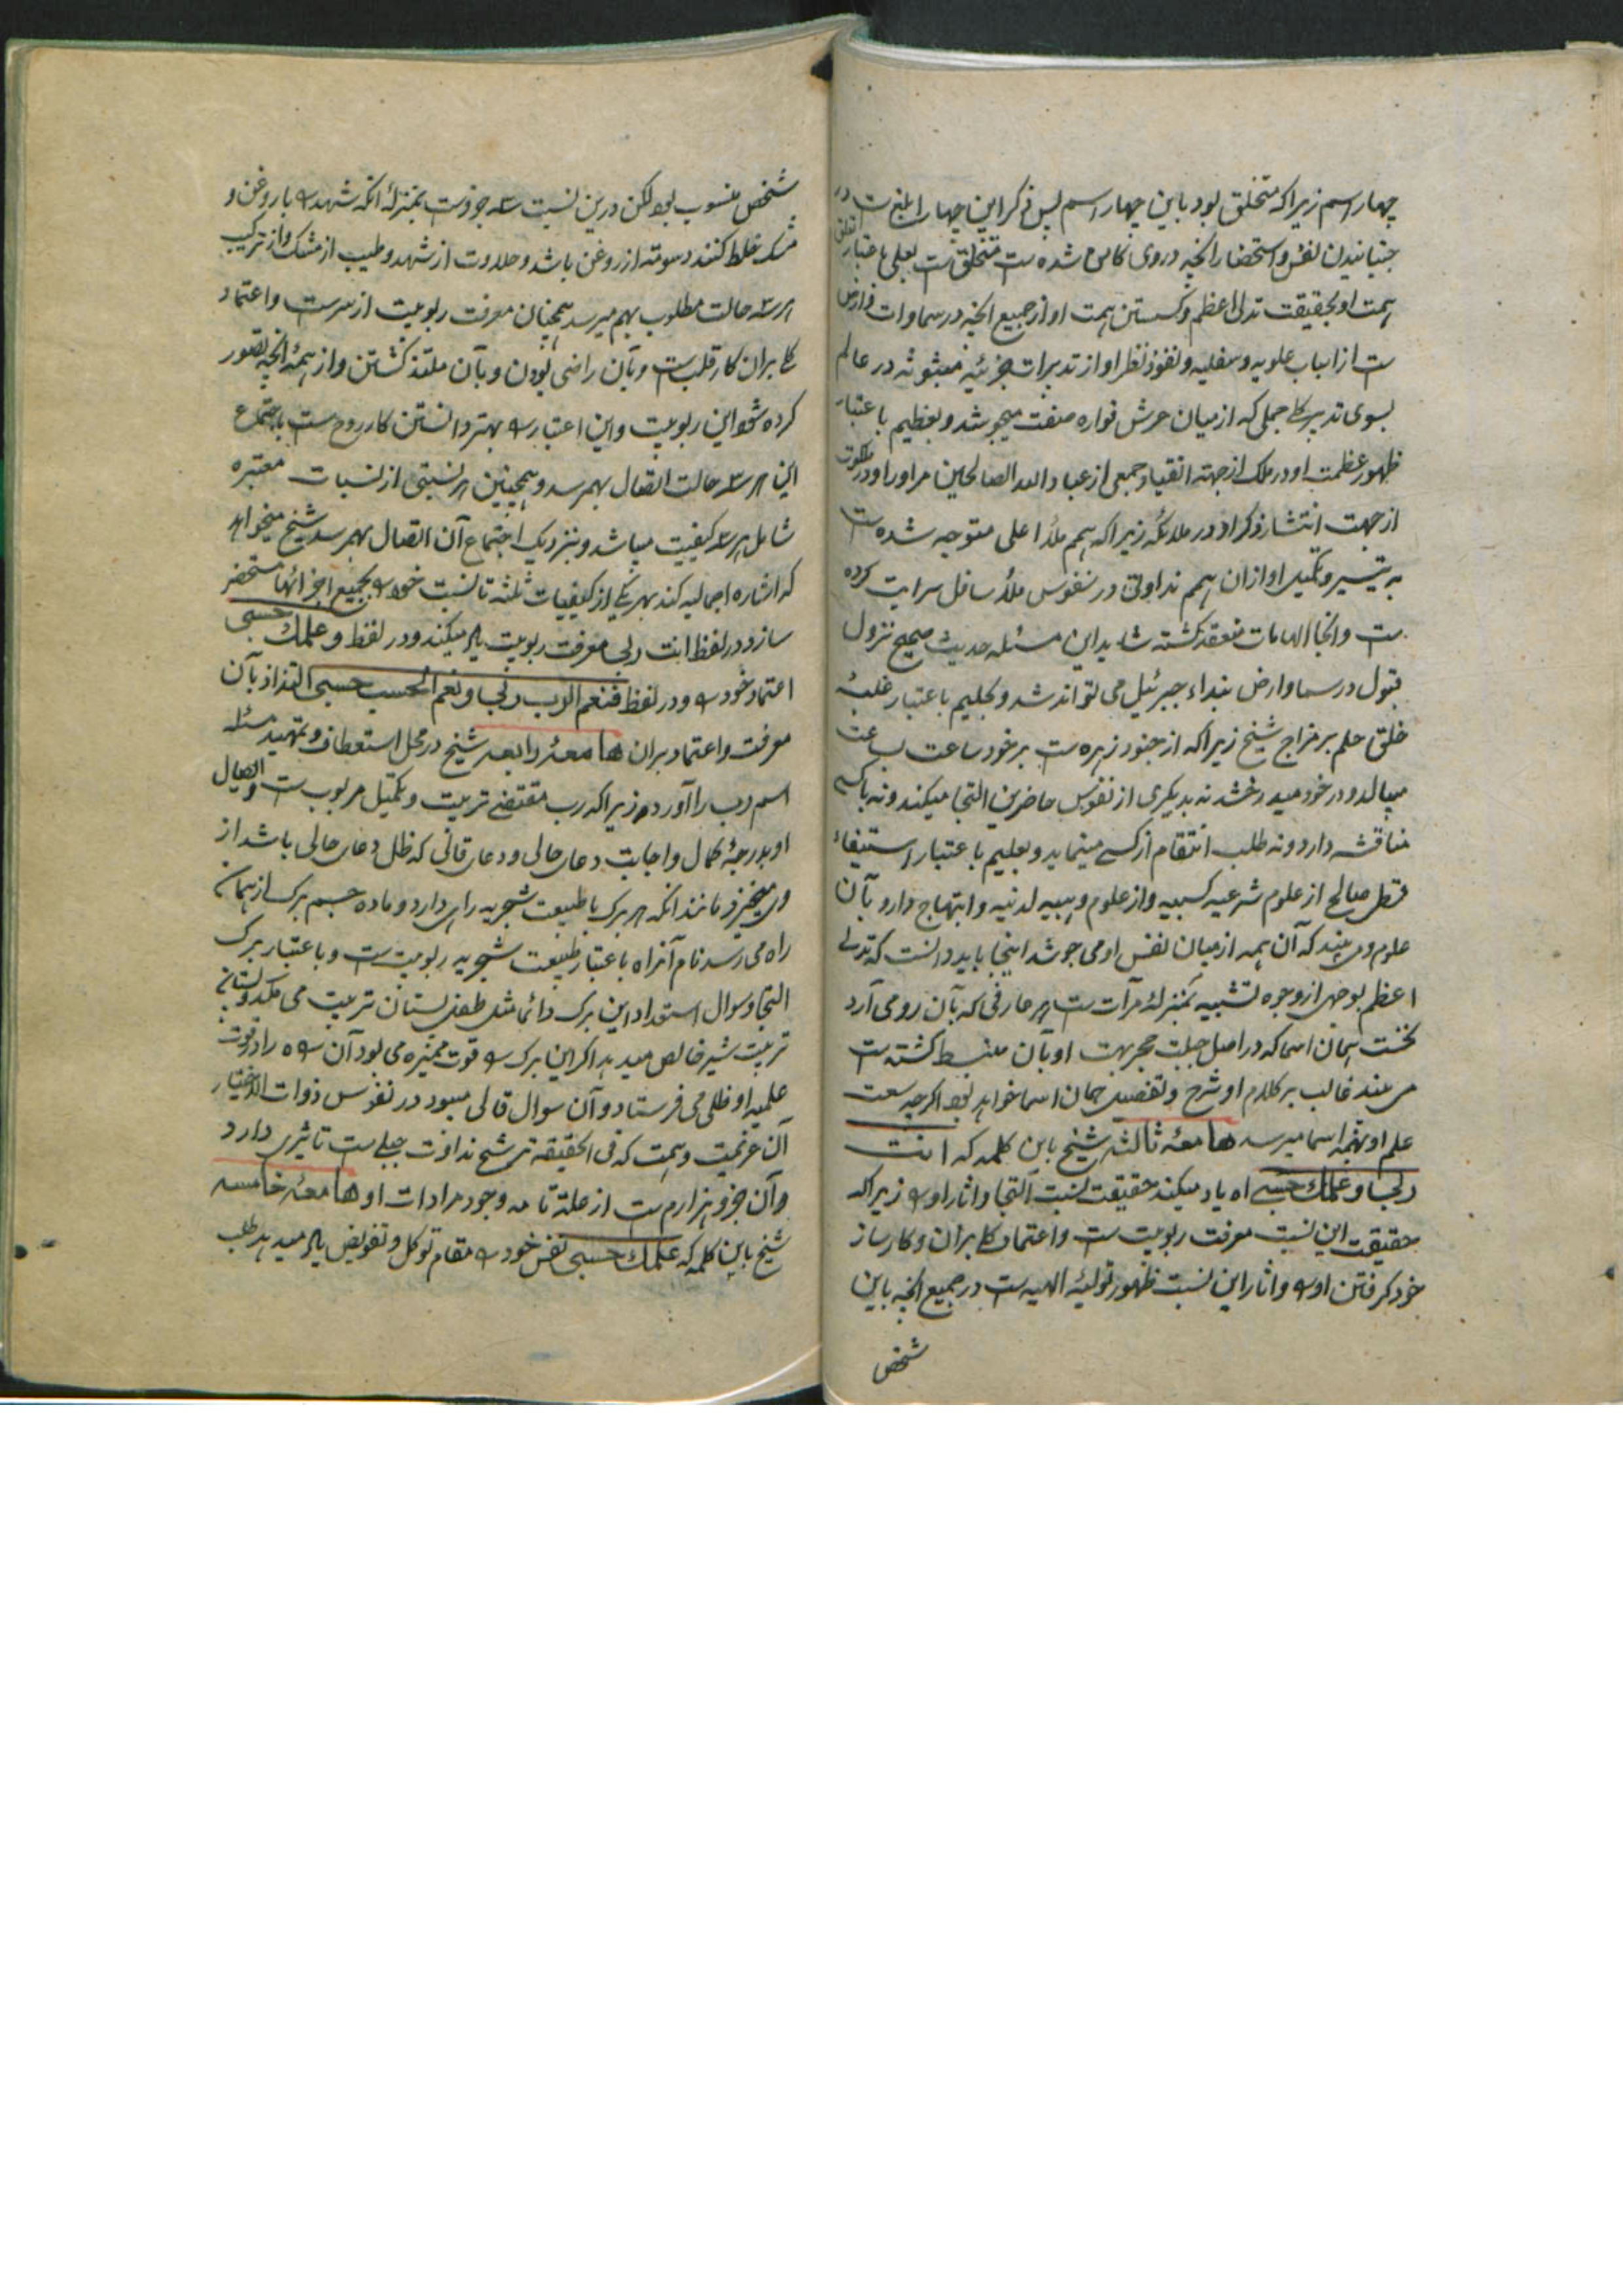 چهار اسم زیراکه متخلق بود باین چهار اسم پس ذکر این چهار ابلغ ست در
جنبانیدن نفس و استحضار انچه در وی کامن شده ست متخلق ست بعلی باعتبار تعلق
همت او بحقیقت تدلی اعظم و کسستن همت او از جمیع انچه در سماوات و ارض
ست از اسباب علویه و سفلیه و نفوذ نظر او از تدبیرات جزئیه مبثوثه در عالم
بسوی تدبیر کلی جملی که از میان عرش فواره صفت میجوشد و بعظیم باعتبار
ظهور عظمت او در ملک از جهته انقیاد جمعی از عباد الله الصالحین مر او را و در ملکوت
از جهت انتشار ذکر او در ملائکه زیراکه همم ملأ اعلی متوجه شده ست
به تیسیر و تکمیل او ازان همم نداوتی در نفوس ملأ سافل سرایت کرده
ست و انجا الهامات منعقد کشته شاید این مسئله حدیث صحیح نزول
قبول در سما و ارض بنداء جبرئیل می تواند شد و بحلیم باعتبار غلبهٔ
خلق حلم بر مزاج شیخ زیراکه از جنود زهره ست بر خود ساعت بساعت
میبالد و در خود میدرخشد نه بدیکری از نفوس حاضرین التجا میکند و نه باکسی
مناقشه دارد و نه طلب انتقام از کسے مینماید و بعلیم باعتبار استیفاء
قسط صالح از علوم شرعیه کسبیه و از علوم وهبیه لدنیه و ابتهاج دارد بآن
علوم و می بیند که آن همه از میان نفس او می جوشد اینجا باید دانست که تدلی
اعظم بوجهی از وجوه تشبیه بمنزلهٔ مرآت ست هر عارفی که بآن رو می آرد
نخست همان اسما که در اصل جبلت حجر بهت او بآن منبسط کشته ست
می بیند غالب بر کلام او شرح و تفصیل همان اسما خواهد بود اکرچه سعت
علم او بهمه اسما میرسد هامعهٔ ثالثه شیخ باین کلمه که انت
ربی و علمک حسبی اه یاد میکند حقیقت نسبت التجا و اثار او را زیراکه
حقیقت این نسبت معرفت ربوبیت ست و اعتماد کلی بران و کارساز
خود کرفتن او را و اثار این نسبت ظهور تولیهٔ الهیه ست در جمیع انچه باین
شخص
شخص منسوب بود لکن درین نسبت سه جزوست بمنزلهٔ انکه شهد را با روغن و
مشک خلط کنند دسومته از روغن باشد و حلاوت از شهد و طیب از مشک و از ترکیب
هر سه حالت مطلوب بهم میرسد همچنان معرفت ربوبیت از سرست و اعتماد
کلی بران کار قلب ست و بآن راضی بودن و بآن ملتذ کشتن و از همهٔ انچه تصور
کرده شود این ربوبیت و این اعتبار را بهتر دانستن کار روح ست باجتماع
این هر سه حالت اتصال بهم رسد و همچنین هر نسبتی از نسبات معتبره
شامل هر سه کیفیت میباشد و بنزدیک اجتماع آن اتصال بهم رسد شیخ میخواهد
که اشاره اجمالیه کند بهر یکی از کیفیات ثلثه تا نسبت خود را بجمیع اجزائها مستحضر
سازد در لفظ انت ربی معرفت ربوبیت یاد میکند و در لفظ و علمک حسبی
اعتماد خود را و در لفظ فنعم الرب ربی و نعم الحسب حسبی التذاذ بآن
معرفت و اعتماد بران هامعهٔ رابعه شیخ در محل استعطاف و تمهید مسئله
اسم رب را آورده زیراکه رب مقتضی تربیت و تکمیل مربوب ست و ایصال
او بدرجهٔ کمال و اجابت دعای حالی و دعای قالی که ظل دعای حالی باشد از
وی میخیزد مانند انکه هر برک با طبیعت شجریه راهی دارد و ماده جسم برک از همان
راه می رسد نام آنراه باعتبار طبیعت شجریه ربوبیت ست و باعتبار برک
التجا و سوال استعداد این برک دائما مثل طفل پستان تربیت می مکد و پستان
تربیت شیر خالص میدهد اکر این برک را قوت ممیزه می بود آن راه را در قوت
علمیه او ظلی می فرستاد و آن سوال قالی میبود در نفوس ذوات الاختیار
آن عزیمت و همت که فی الحقیقة ترشح نداوت جبلی ست تاثیری دارد
و آن جزو هزارم ست از علة تامه وجود مرادات او هامعهٔ خامسه
شیخ باین کلمه که علمک حسبی نفس خود را مقام توکل و تفویض یاد میدهد طلب